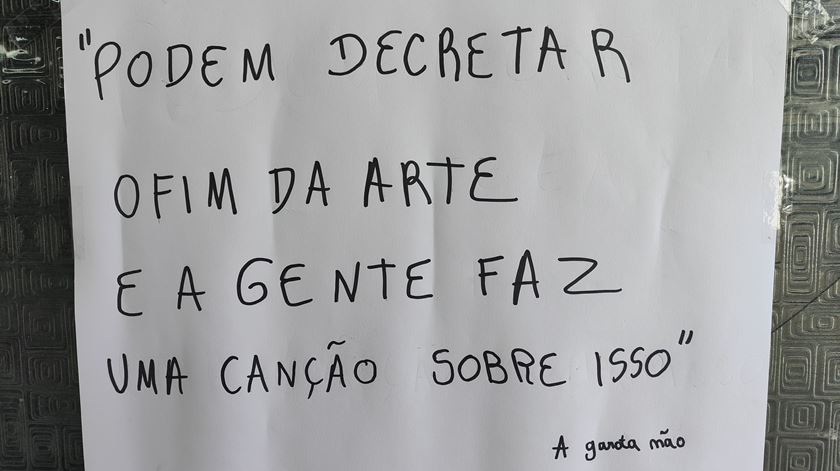 "PODEM DECRETAR
O FIM DA ARTE
E A GENTE FAZ
UMA CANÇÃO SOBRE ISSO"
A garota não